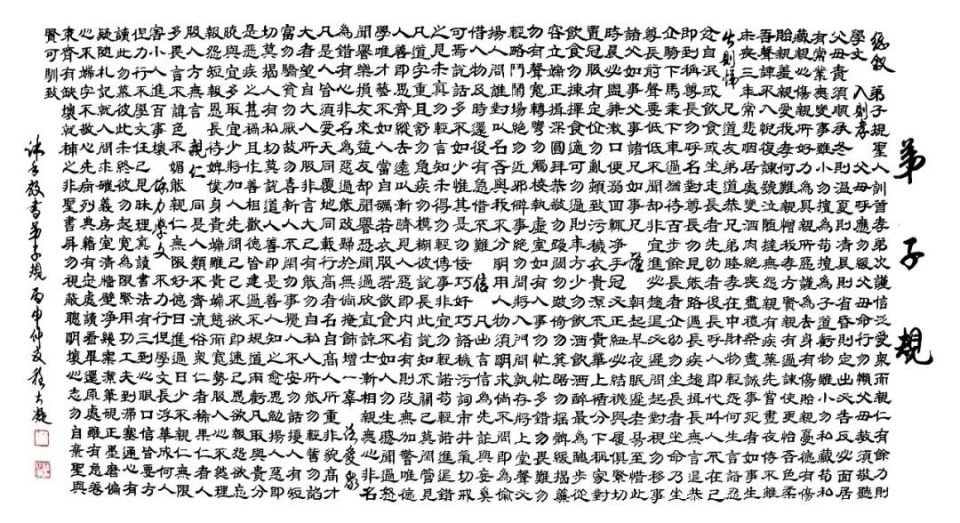 弟子規
總敘 弟子規聖人訓首孝弟次謹信泛愛衆而親仁有餘力則
學文 入則孝 父母呼應勿緩父母命行勿懶父母教須敬聽
父母責須順承冬則溫夏則凊晨則省昏則定出必告反必面居
有常業無變事雖小勿擅為苟擅為子道虧物雖小勿私藏苟私
藏親心傷親所好力為具親所惡謹為去身有傷貽親憂德有傷
貽親羞親愛我孝何難親憎我孝方賢親有過諫使更怡吾色柔
吾聲諫不入悅復諫號泣隨撻無怨親有疾藥先嘗晝夜侍不離
床喪三年常悲咽居處變酒肉絕喪盡禮祭盡誠事死者如事生
出則悌 兄道友弟道恭兄弟睦孝在中財物輕怨何生言語忍
忿自泯或飲食或坐走長者先幼者後長呼人即代叫人不在己
即到稱尊長勿呼名對尊長勿見能路遇長疾趨揖長無言退恭
立騎下馬乘下車過猶待百步餘長者立幼勿坐長者坐命乃坐
尊長前聲要低低不聞卻非宜進必趨退必遲問起對視勿移事
諸父如事父事諸兄如事兄 謹 朝起早夜眠遲老易至惜此
時晨必盥兼漱口便溺回輒淨手冠必正紐必結襪與履俱緊切
置冠服有定位勿亂頓致污穢衣貴潔不貴華上循分下稱家對
飲食勿揀擇食適可勿過則年方少勿飲酒飲酒醉最為醜步從
容立端正揖深圓拜恭敬勿踐閾勿跛倚勿箕踞勿搖髀緩揭簾
勿有聲寬轉彎勿觸棱執虛器如執盈入虛室如有人事勿忙忙多錯勿畏難
勿輕略鬥鬧場絕勿近邪僻事絕勿問將入門問孰存將上堂聲必
揚人問誰對以名吾與我不分明用人物須明求倘不問即為偷
借人物及時還後有急借不難 信 凡出言信為先詐與妄奚
可焉話說多不如少惟其是勿佞巧奸巧語穢污詞市井氣切戒
之見未真勿輕言知未的勿輕傳事非宜勿輕諾苟輕諾進退錯
凡道字重且舒勿急疾勿模糊彼說長此說短不關己莫閒管見
人善即思齊縱去遠以漸躋見人惡即內省有則改無加警唯德
學唯才藝不如人當自礪若衣服若飲食不如人勿生慼聞過怒
聞譽樂損友來益友卻聞譽恐聞過欣直諒士漸相親無心非名
為錯有心非名為惡過能改歸於無倘掩飾增一辜 泛愛衆
凡是人皆須愛天同覆地同載行高者名自高人所重非貌高才
大者望自大人所服非言大己有能勿自私人所能勿輕訾勿諂
富勿驕貧勿厭故勿喜新人不閒勿事攪人不安勿話擾人有短
切莫揭人有私切莫說道人善即是善人知之愈思勉揚人惡即
是惡疾之甚禍且作善相勸德皆建過不規道兩虧凡取與貴分
曉與宜多取宜少將加人先問己己不欲即速已恩欲報怨欲忘
報怨短報恩長待婢僕身貴端雖貴端慈而寬勢服人心不然理
服人方無言 親仁 同是人類不齊流俗衆仁者稀果仁者人
多畏言不諱色不媚能親仁無限好德日進過日少不親仁無限
害小人進百事壞 餘力學文 不力行但學文長浮華成何人
但力行不學文任己見昧理真讀書法有三到心眼口信皆要方
讀此勿慕彼此未終彼勿起寬為限緊用功工夫到滯塞通心有
疑隨札記就人問求確義房室清牆壁淨几案潔筆硯正墨磨偏
心不端字不敬心先病列典籍有定處讀看畢還原處雖有急卷
束齊有缺壞就補之非聖書屏勿視蔽聰明壞心志勿自暴勿自棄聖與
賢可馴致
書弟子規 丙申仲夏